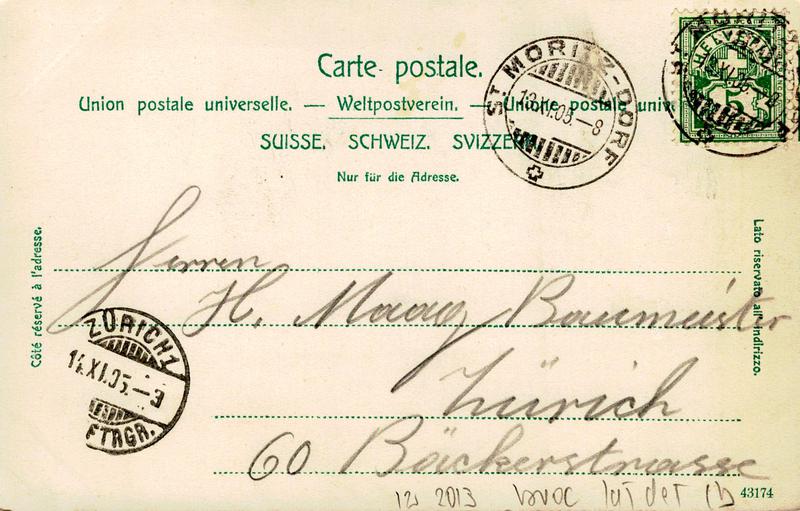 Carte postale.
Union postale universelle. — Weltpostverein. — Unione postale univ
SUISSE. SCHWEIZ. SVIZZERA
Nur für die Adresse.
ST. MORITZ-DORF
13.XI.05.–8
HELVETIA
5
Côté réservé à l'adresse.
Lato riservato all'indirizzo.
Herren
H. Maag Baumeister
Zürich
60 Bäckerstrasse
ZÜRICH 1
14.XI.05.–3
FTRGR.
2013
43174